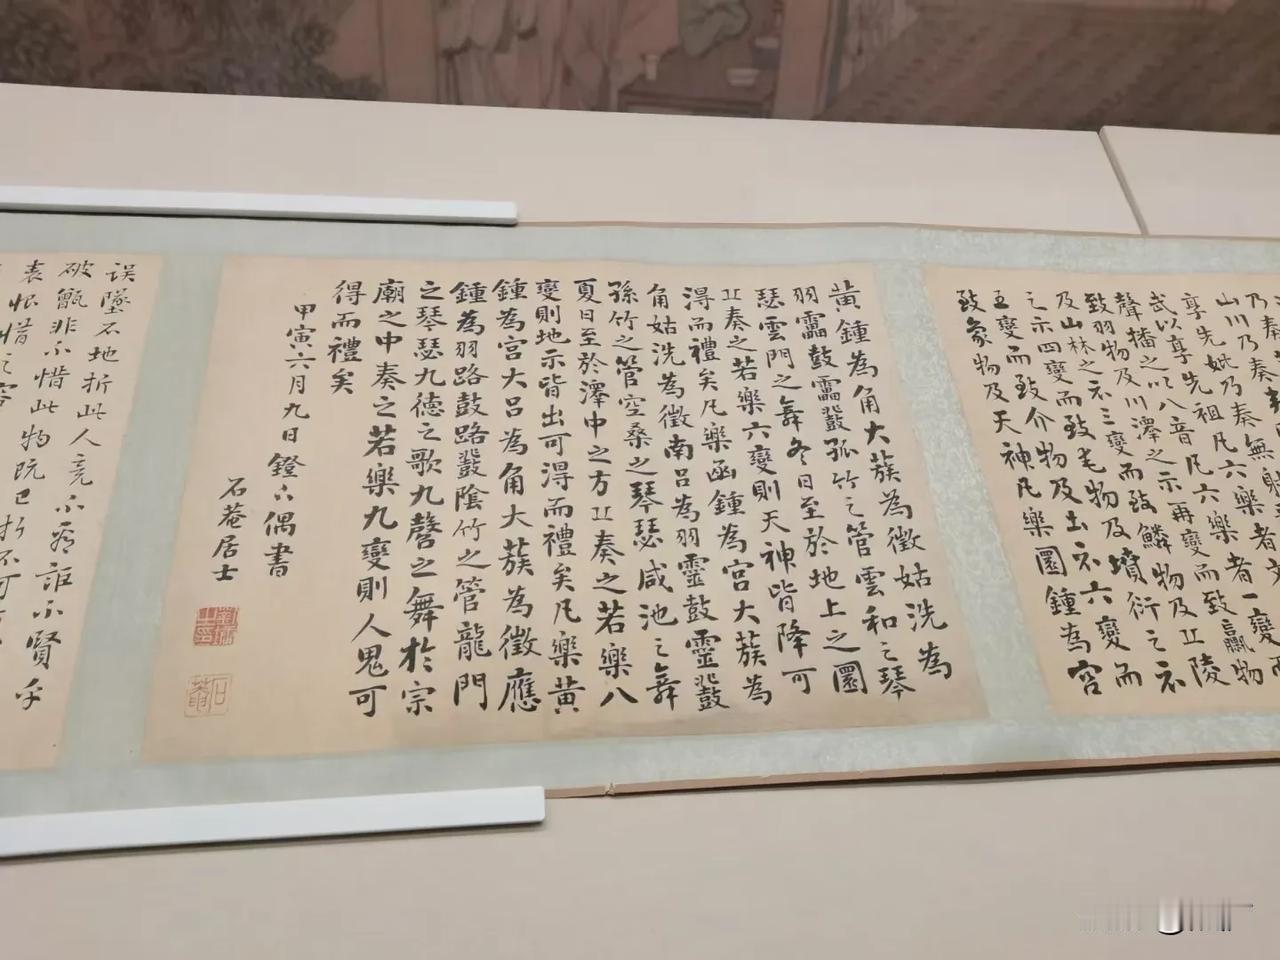 山川乃奏
享先妣乃奏無射
武以享先祖凡六樂者文
聲播之以八音凡六樂者一變而
致羽物及川澤之示再變而致臝物
及山林之示三變而致鱗物及丘陵
之示四變而致毛物及墳衍之示
五變而致介物及土示六變而
致象物及天神凡樂圜鍾為宮
黃鍾為角大蔟為徵姑洗為
羽靁鼓靁鼗孤竹之管雲和之琴
瑟雲門之舞冬日至於地上之圜
丘奏之若樂六變則天神皆降可
淂而禮矣凡樂函鍾為宮大蔟為
角姑洗為徵南呂為羽靈鼓靈鼗
孫竹之管空桑之琴瑟咸池之舞
夏日至於澤中之方丘奏之若樂八
變則地示皆出可淂而禮矣凡樂黃
鍾為宮大呂為角大蔟為徵應
鍾為羽路鼓路鼗陰竹之管龍門
之琴瑟九德之歌九㲈之舞於宗
廟之中奏之若樂九變則人鬼可
得而禮矣
甲寅六月九日鐙下偶書
石菴居士
石菴
误墜地折此人竟不誰不賢乎
破甑非不惜此物既已折不可
恨惜之